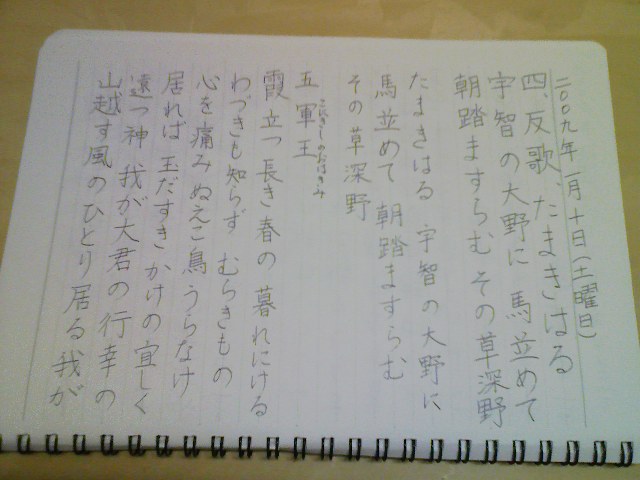 二〇〇九年一月十日(土曜日)
四、反歌、たまきはる
宇智の大野に 馬並めて
朝踏ますらむ その草深野
たまきはる 宇智の大野に
馬並めて 朝踏ますらむ
その草深野
五 軍王
霞立つ長き春の 暮れにける
わづきも知らず むらきもの
心を痛み ぬえこ鳥 うらなけ
居れば 玉だすき かけの宜しく
遠つ神 我が大君の行幸の
山越す風の ひとり居る我が